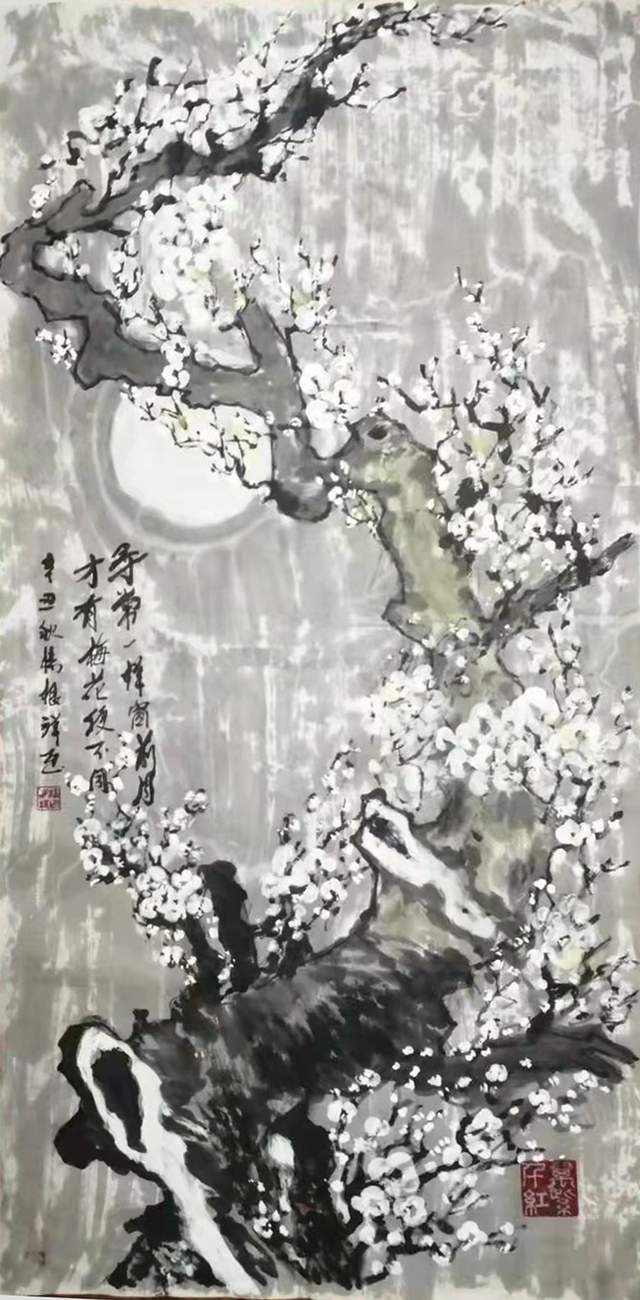 寻常一样窗前月
才有梅花便不同
辛丑秋杨根祥
萬紫
千紅